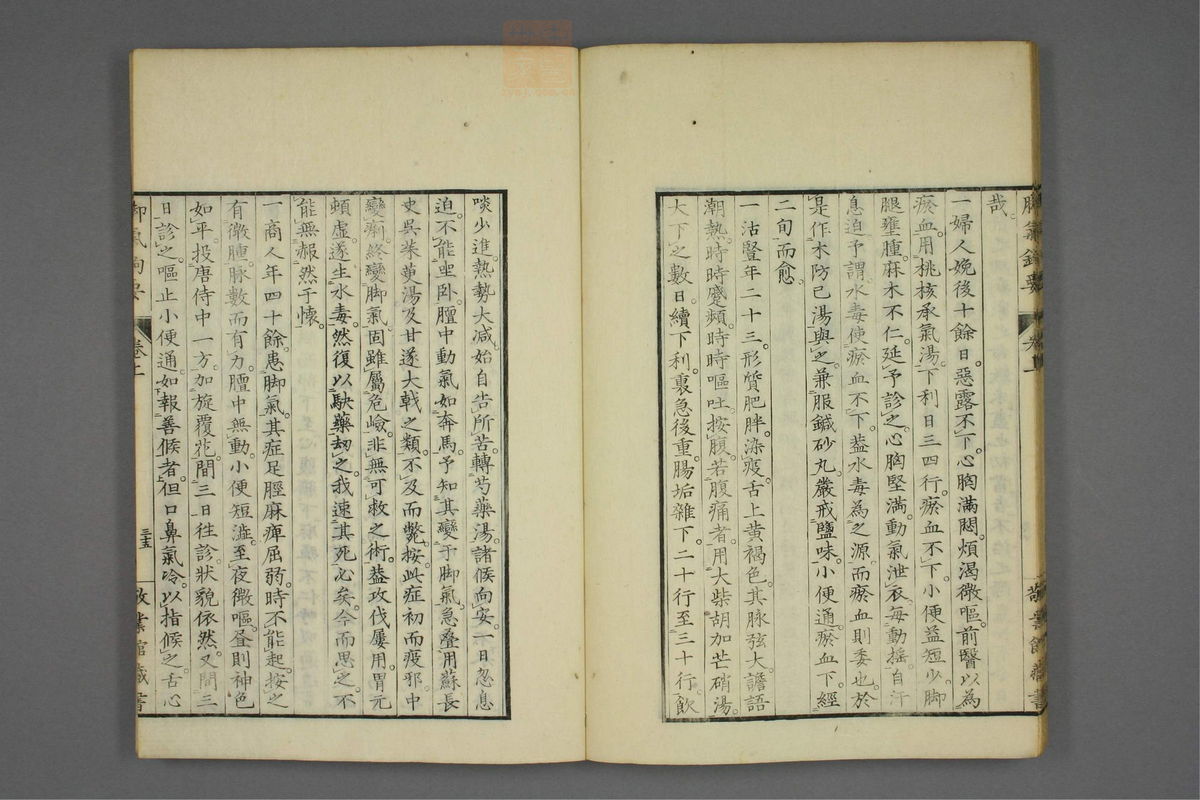 哉。
一婦人娩後十餘日。惡露不下。心胸滿悶。煩渴微嘔。前醫以為
瘀血。用桃核承氣湯。下利日三四行。瘀血不下。小便益短少。脚
腿壅腫。麻木不仁。延予診之。心胸堅滿。動氣泄衣。每動搖。自汗
息迫。予謂。水毒使瘀血不下。蓋水毒為之源。而瘀血則委也。於
是作木防已湯與之。兼服鍼砂丸。嚴戒鹽味。小便通。瘀血下。經
二旬而愈。
一沽豎年二十三。形質肥胖。染疫。舌上黃褐色。其脉弦大。譫語
潮熱。時時蹙頞。時時嘔吐。按腹。若腹痛者。用大柴胡加芒硝湯。
大下之數日。續下利。裏急後重。腸垢雜下。二十行至三十行。飲
啖少進。熱勢大減。始自告所苦。轉芍藥湯。諸候向安。一日忽息
迫。不能坐卧。膻中動氣如奔馬。予知其變于脚氣。急疊用蘇長
史吳茱萸湯及甘遂大戟之類。不及而斃。按。此症初而疫邪。中
變痢。終變脚氣。固雖屬危嶮。非無可救之術。蓋攻伐屢用。胃元
頓虛。遂生水毒。然復以駃藥劫之。我速其死必矣。今而思之。不
能無赧然于懷。
一商人年四十餘。患脚氣。其症足脛麻痺屈弱。時不能起。按之
有微腫。脉數而有力。膻中無動。小便短澁。至夜微嘔。晝則神色
如平。投唐侍中一方。加旋覆花。間三日往診。狀貌依然。又間三
日診之。嘔止小便通。如報善候者。但口鼻氣冷。以指候之。舌心
卷上
三五